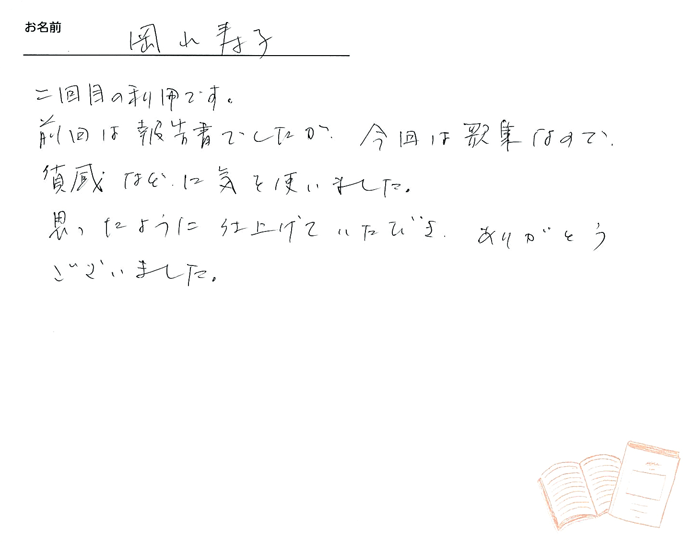 お名前 岡山寿子
二回目の利用です。
前回は報告書でしたが、今回は歌集なので、
質感などに気を使いました。
思ったように仕上げていただき、ありがとう
ございました。